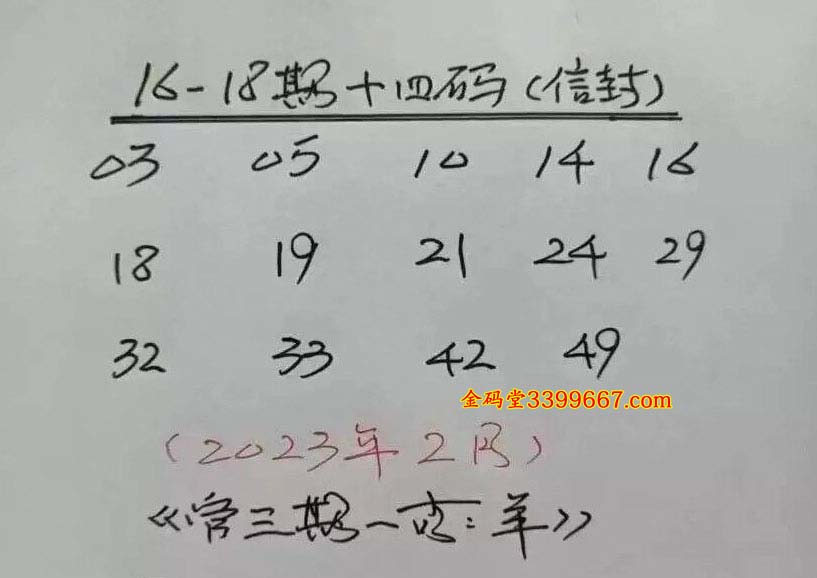 16-18期十四码(信封)
03 05 10 14 16
18 19 21 24 29
32 33 42 49
金码堂3399667.com
(2023年2月)
《管三期一肖:羊》